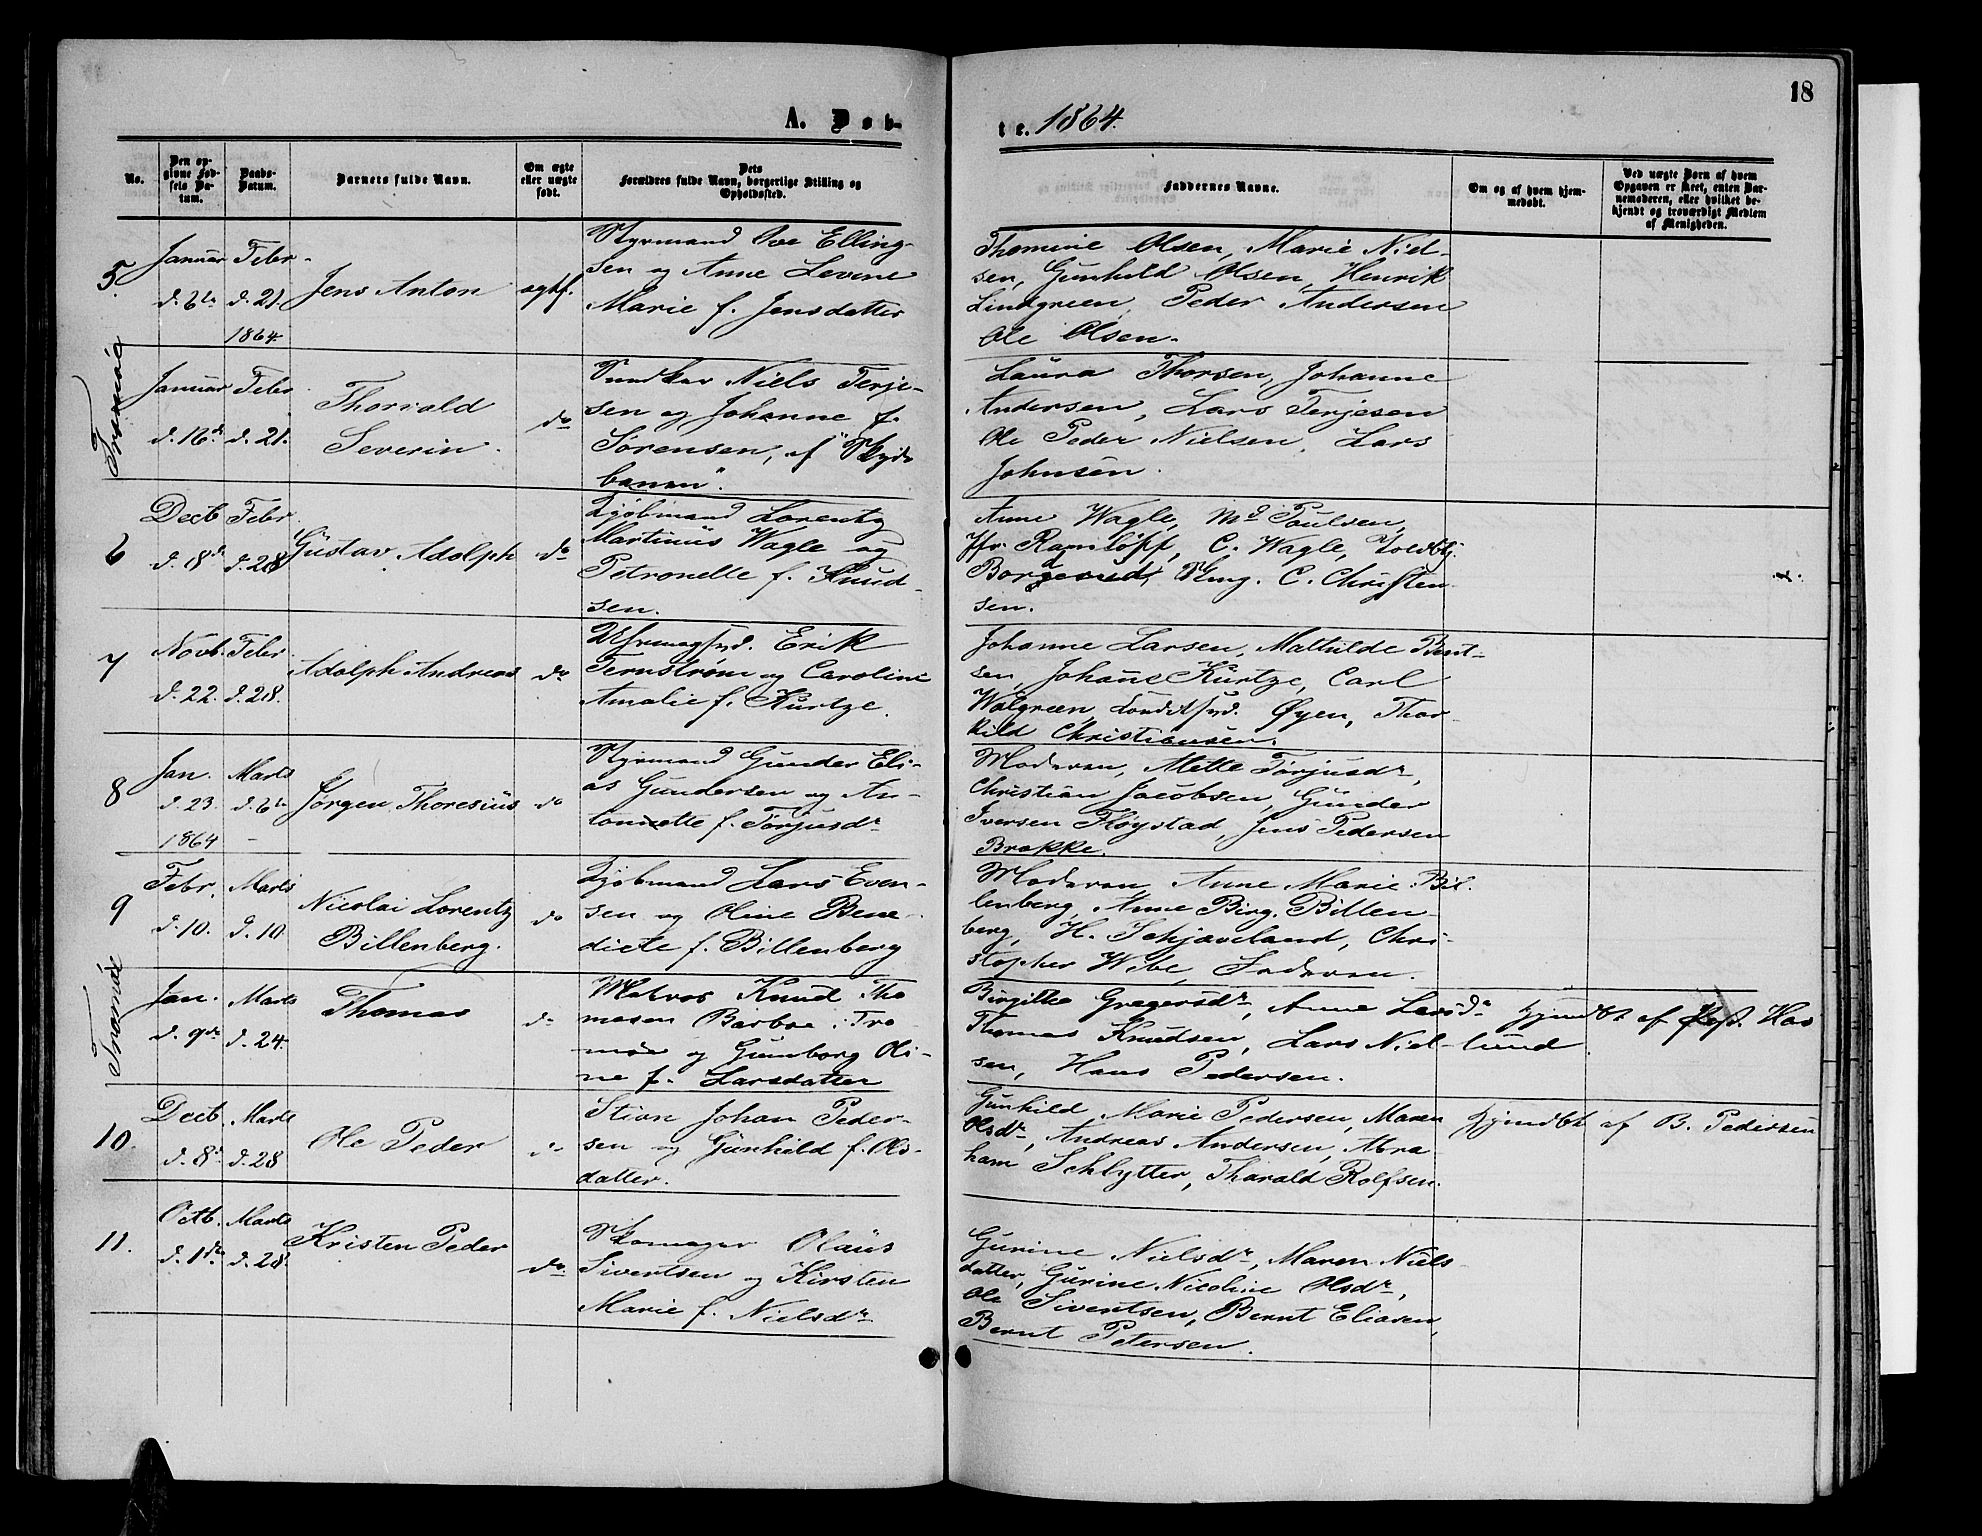 18
A. Døb-
te. 1864.
No.
Den op-
givne Fød-
sels Da-
tum.
Daabs-
Datum.
Barnets fulde Navn.
Om ægte
eller uægte
født.
Dets
Forældres fulde Navn, borgerlige Stilling og
Opholdssted.
Faddernes Navne.
Om og af hvem hjem-
medøbt.
Ved uægte Børn af hvem
Opgaven er skeet, enten Bar-
nemoderen, eller hvilket be-
kjendt og troværdigt Medlem
af Menigheden.
5.
Januar
d. 6te
Febr.
d. 21.
1864.
Jens Anton
ægtf.
Styrmand Ove Elling-
sen og Anne Levine
Marie f. Jensdatter
Thomine Olsen, Marie Niel-
sen, Gunhild Olsen, Henrik
Lindgreen, Peder Andersen
Ole Olsen.
Tromöe
Januar
d. 16de
Febr
d. 21.
Thorvald
Severin.
do
Snedker Niels Terje-
sen og Johanne f.
Sörensen, af "Skyds
banen".
Laura Thorsen, Johanne
Andersen, Lars Terjesen
Ole Peder Nielsen, Lars
Johnsen.
6
Decb
d. 18de
Febr.
d. 28
Gustav Adolph
do
Kjöbmand Lorentz
Martinus Wagle og
Petronelle f. Knud-
sen.
Anne Wagle, Md Poulsen,
Jfr. Ramløff, C. Wagle, Toldbtj.
C. Christen-
sen.
7
Novb.
d. 22.
Febr
d. 28.
Adolph Andreas
do
Erik
Ternström og Caroline
Amalie f. Kurtze.
Johanne Larsen, Mathilde Bent-
sen, Johane Kurtze, Carl
Walgreen, Conditsvd. Øyen, Thor-
kild Christiansen.
8
Jan.
d. 23.
1864
Marts
d. 6te
-
Jørgen Thoresius
do
Styrmand Gunder Eli-
as Gundersen og An-
tonette f. Torjusdr
Moderen, Mette Torjusdr,
Christian Jacobsen, Gunder
Iversen Fløystad, Jens Pedersen
Brække.
9
Febr.
d. 10.
Marts
d. 10
Nicolai Lorentz
Billenberg.
do
Kjöbmand Lars Even-
sen og Oline Bene-
dicte f. Billenberg
Moderen, Anne Marie Bil-
lenberg, Anne Birg. Billen-
berg, H. Schjæveland, Chri-
stopher Wibe, Faderen.
Tromöe
Jan.
d. 9de
Marts
d. 24.
Thomas
do
Matros Knud Tho
mesen Barboe i Tro
möe og Gunborg Oli-
ne f. Larsdatter
Birgitte Gregersdr, Anne Larsdr
Thomas Knudsen, Lars Niel-
sen, Hans Pedersen.
hjmdbt af Præst. Has
lund.
10.
Decb
d. 8de
Marts
d. 28
Ole Peder
do
Stian Johan Peder-
sen og Gunhild f. Ols-
datter.
Gunhild Marie Pedersen, Maren
Olsdr, Andreas Andersen, Abra
ham Schlytter, Tharald Rolfsen.
hjmdbt af B. Pedersen
11.
Octb.
d. 1ste
Marts
d. 28.
Kristen Peder
do.
Skomager Olaus
Sivertsen og Kirsten
Marie f. Nielsdr
Gurine Nielsdr, Maren Niels
datter, Gurine Nicoline Olsdr,
Ole Sivertsen, Bernt Eliasen,
Bernt Petersen.